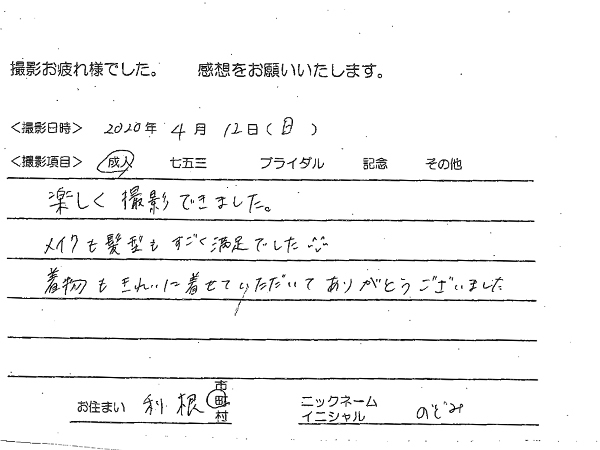 撮影お疲れ様でした。　感想をお願いいたします。
＜撮影日時＞ 2020年 4月 12日(日)
＜撮影項目＞ 成人 七五三 ブライダル 記念 その他
楽しく撮影できました。
メイクも髪型もすごく満足でした
着物もきれいに着せていただいてありがとうございました
お住まい 利根 市町村
ニックネーム
イニシャル のぞみ